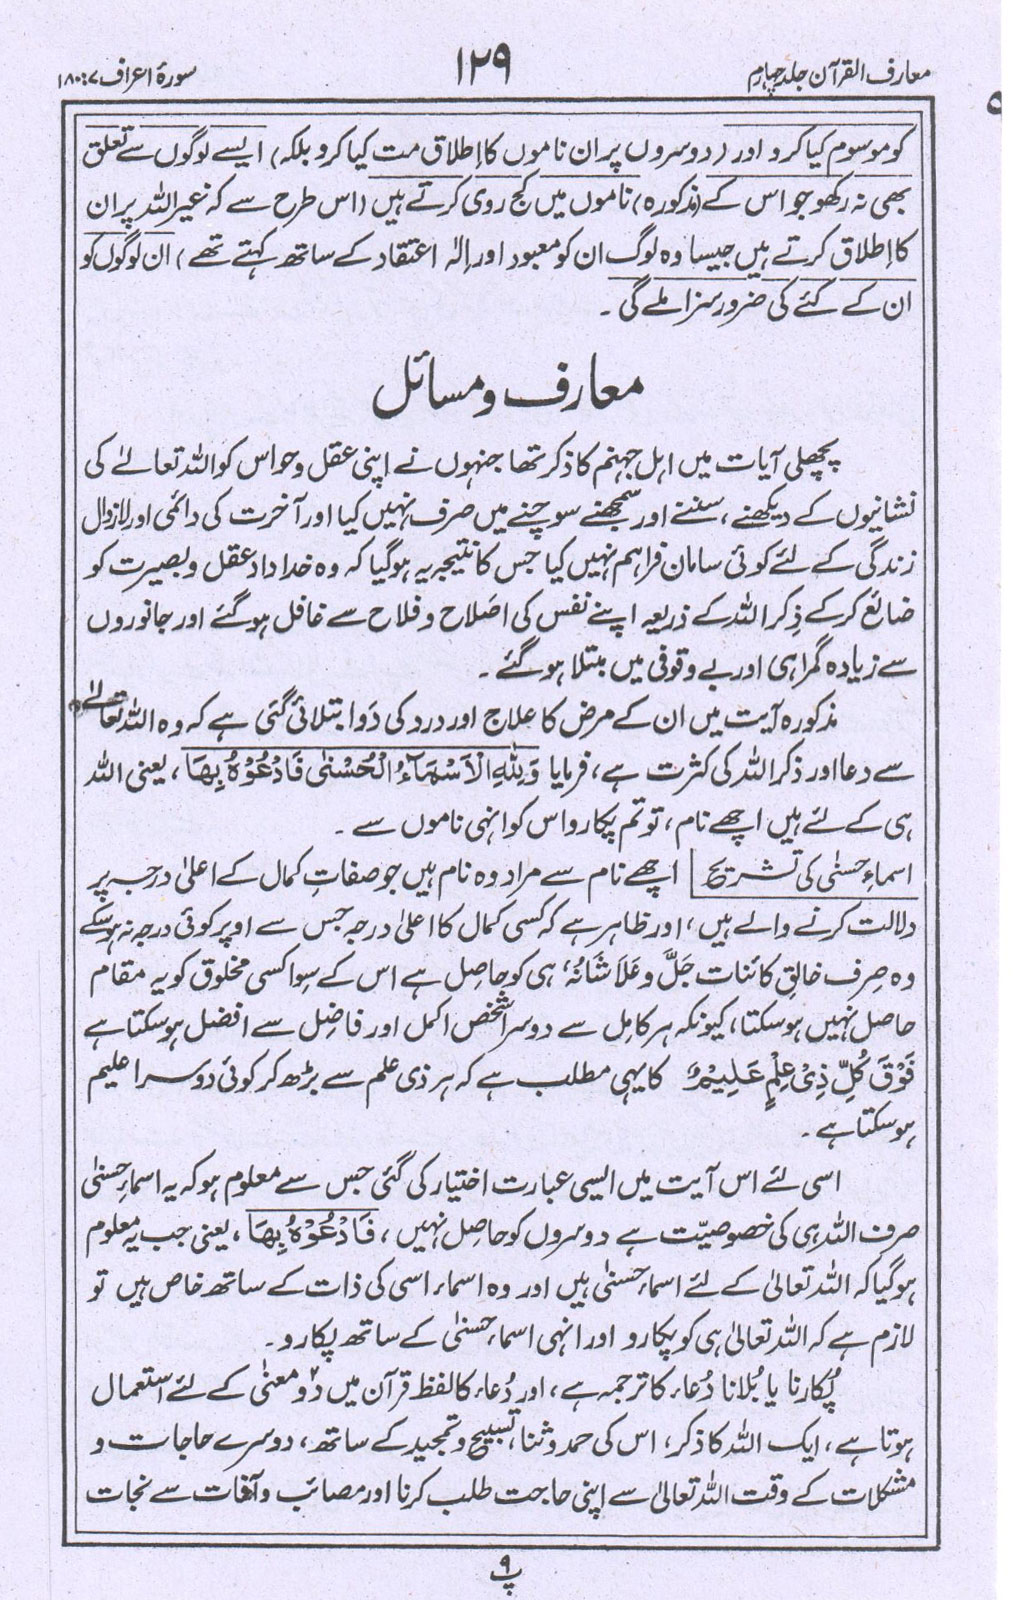 معارف القرآن جلد چہارم
۱۲۹
سورۂ اعراف ۷: ۱۸۰
کو موسوم کیا کرو اور (دوسروں پر ان ناموں کا اطلاق مت کیا کرو بلکہ) ایسے لوگوں سے تعلق
بھی نہ رکھو جو اس کے (مذکورہ) ناموں میں کج روی کرتے ہیں (اس طرح سے کہ غیر اللہ پر ان
کا اطلاق کرتے ہیں جیسا وہ لوگ ان کو معبود اور الٰہ اعتقاد کے ساتھ کہتے تھے) ان لوگوں کو
ان کے کئے کی ضرور سزا ملے گی۔
معارف و مسائل
پچھلی آیات میں اہل جہنم کا ذکر تھا جنہوں نے اپنی عقل و حواس کو اللہ تعالےٰ کی
نشانیوں کے دیکھنے، سننے اور سمجھنے سوچنے میں صرف نہیں کیا اور آخرت کی دائمی اور لازوال
زندگی کے لئے کوئی سامان فراہم نہیں کیا جس کا نتیجہ یہ ہو گیا کہ وہ خداداد عقل و بصیرت کو
ضائع کر کے ذِکر اللہ کے ذریعہ اپنے نفس کی اصَلاح و فلاح سے غافل ہو گئے اور جانوروں
سے زیادہ گمراہی اور بے وقوفی میں مبتلا ہو گئے۔
مذکورہ آیت میں ان کے مرض کا علاج اور درد کی دَوا بتلائی گئی ہے کہ وہ اللہ تعالےٰ
سے دعا اور ذکر اللہ کی کثرت ہے، فرمایا وَلِلّٰہِ الْاَسْمَآءُ الْحُسْنٰی فَادْعُوْہُ بِھَا، یعنی اللہ
ہی کے لئے ہیں اچھے نام، تو تم پکارو اس کو انہی ناموں سے۔
اسماءِ حسنٰی کی تشریح | اچھے نام سے مراد وہ نام ہیں جو صفاتِ کمال کے اعلیٰ درجہ پر
دلالت کرنے والے ہیں، اور ظاہر ہے کہ کسی کمال کا اعلیٰ درجہ جس سے اوپر کوئی درجہ نہ ہو سکے
وہ صِرف خالقِ کائنات جَلَّ وعَلَا شَانُہٗ ہی کو حاصِل ہے اس کے سِوا کسی مخلوق کو یہ مقام
حاصل نہیں ہو سکتا، کیونکہ ہر کامِل سے دوسرا شخص اکمل اور فاضِل سے افضل ہو سکتا ہے
فَوْقَ کُلِّ ذِیْ عِلْمٍ عَلِیْمٌ کا یہی مطلب ہے کہ ہر ذی علم سے بڑھ کر کوئی دوسرا علیم
ہو سکتا ہے۔
اسی لئے اس آیت میں ایسی عبارت اختیار کی گئی جس سے معلوم ہو کہ یہ اسماءِ حسنٰی
صرف اللہ ہی کی خصوصیّت ہے دوسروں کو حاصِل نہیں، فَادْعُوْہُ بِھَا، یعنی جب یہ معلوم
ہو گیا کہ اللہ تعالیٰ کے لئے اسماء حسنٰی ہیں اور وہ اسماء اسی کی ذات کے ساتھ خاص ہیں تو
لازم ہے کہ اللہ تعالیٰ ہی کو پکارو اور انہی اسماء حسنٰی کے ساتھ پکارو۔
پُکارنا یا بُلانا دُعاء کا ترجمہ ہے، اور دُعاء کا لفظ قرآن میں دو معنٰی کے لئے استعمال
ہوتا ہے، ایک اللہ کا ذکر، اس کی حمد و ثنا، تسبیح و تمجید کے ساتھ، دوسرے حاجات و
مشکلات کے وقت اللہ تعالیٰ سے اپنی حاجت طلب کرنا اور مصائب و آفات سے نجات
پ ۹